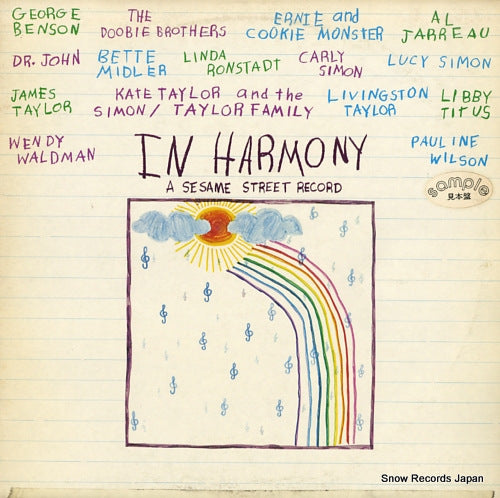 GEORGE BENSON
THE DOOBIE BROTHERS
ERNIE and COOKIE MONSTER
AL JARREAU
DR. JOHN
BETTE MIDLER
LINDA RONSTADT
CARLY SIMON
LUCY SIMON
JAMES TAYLOR
KATE TAYLOR and the SIMON/TAYLOR FAMILY
LIVINGSTON TAYLOR
LIBBY TITUS
WENDY WALDMAN
PAULINE WILSON
IN HARMONY
A SESAME STREET RECORD
sample
見本盤
Snow Records Japan